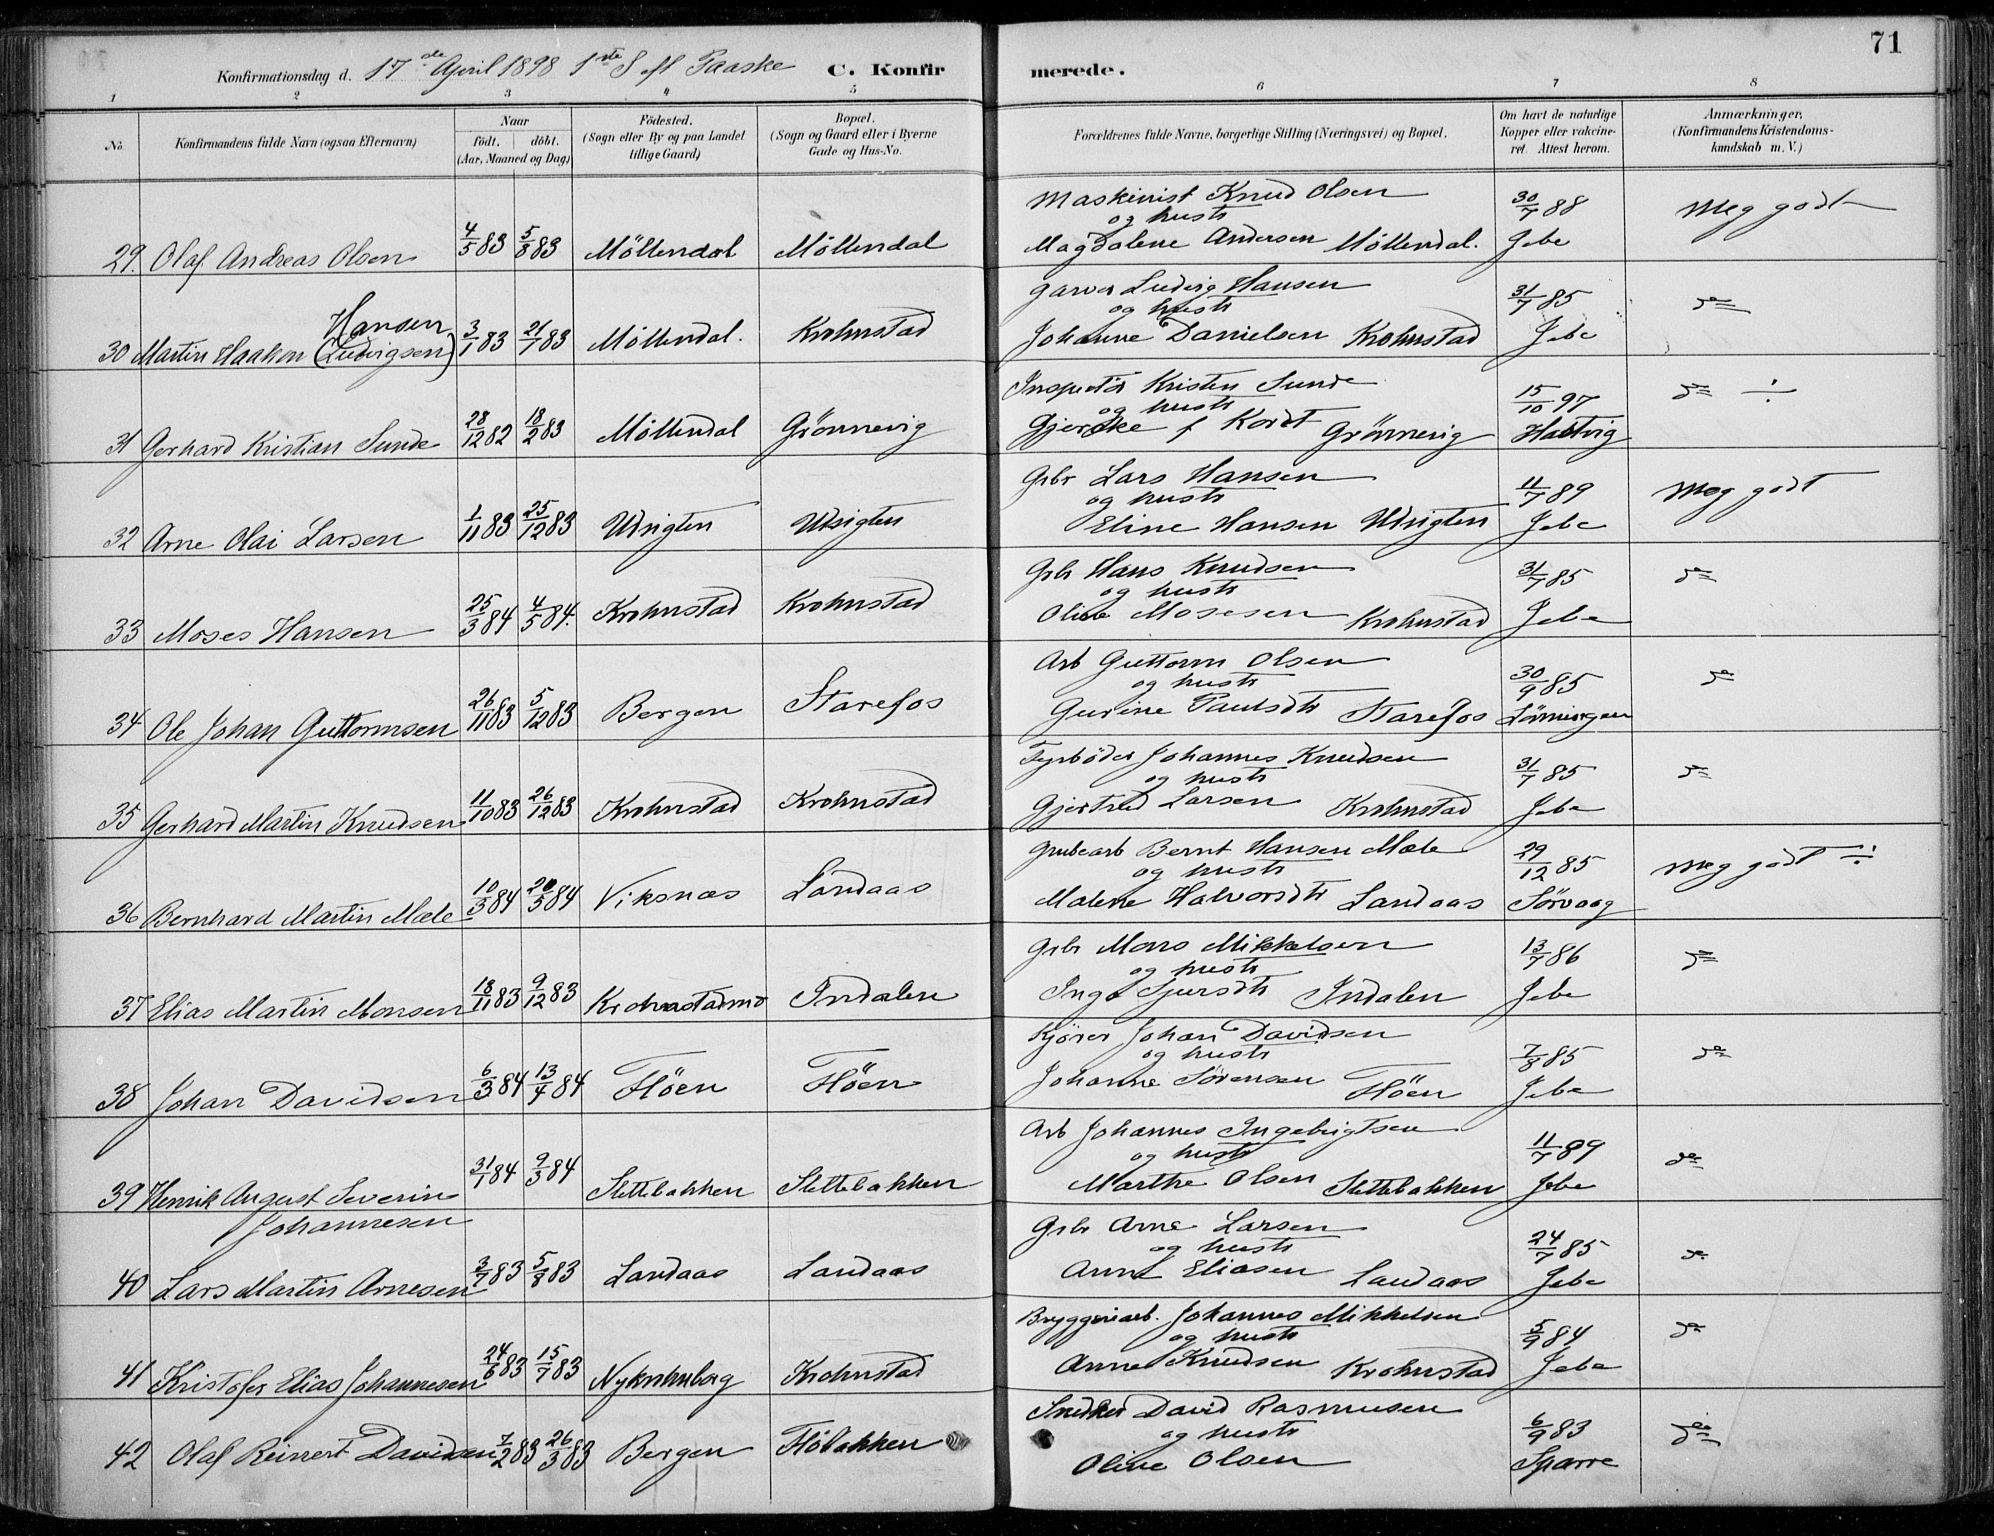 71
Konfirmationsdag d. 17de April 1898 1ste S eft Paaske C. Konfirmerede.
1 2 3 4 5 6 7 8
No. Konfirmandens fulde Navn (ogsaa Efternavn) Naar födt. döbt. (Aar, Maaned og Dag) Födested. (Sogn eller By og paa Landet tillige Gaard) Bopæl. (Sogn og Gaard eller i Byerne Gade og Hus-No. Forældrenes fulde Navne, borgerlige Stilling (Næringsvei) og Bopæl. Om havt de naturlige Kopper eller vaccineret. Attest herom. Anmærkninger, (Konfirmandens Kristendomskundskab m. V.)
Maskinist Knud Olsen 30/7 88 Meg godt
og hustr
29. Olaf Andreas Olsen 4/5 83 5/8 83 Möllendal Möllendal Magdalene Andersen Möllendal. Jebe
Garver Ludvig Hansen 31/7 85 do
Hansen og hustr
30 Martin Haakon (Ludvigsen) 3/1 83 21/1 83 Möllendal. Krohnstad Johanne Danielsen Krohnstad Jebe
Inspektör Kristen Sunde 15/10 97 do ÷
og hustr
31 Gerhard Kristian Sunde 28/12 82 18/2 83 Möllendal Grönnevig f Kordt Grönnevig
Grbr Lars Hansen 11/7 89 Meg godt
og hustr
32 Arne Olai Larsen 1/11 83 25/12 83 Udsigten Udsigten Eline Hansen Udsigten Jebe
Grbr Hans Knudsen 31/7 85 do
og hustr
33 Moses Hansen 25/3 84 4/5 84. Krohnstad Krohnstad Oline Mosesen Krohnstad Jebe
Arb Guttorm Olsen 30/9 85 do
og hustr
34 Ole Johan Guttormsen 26/11 83 5/12 83 Bergen Starefos Gurine Paulsdtr Starefos
Fyrböder Johannes Knudsen 31/7 85 do
og hustr
35 Gerhard Martin Knudsen 11/10 83 26/12 83 Krohnstad Krohnstad Gjertrud Larsen Krohnstad Jebe
Grubearb Bernt Hansen Mæle 29/12 85 meg godt ÷
og hustr
36 Bernhard Martin Mæle 10/3 84 20/5 84 Viksnæs Landaas Malene Halvorsdtr Landaas Sörvaag
Grbr Mons Mikkelsen 13/7 86 do
og hustr
37 Elias Martin Monsen 18/11 83 9/12 83 Krohnstadmo Indalen Inga Sjursdtr Indalen Jebe
Kjörer Johan Davidsen 7/8 85 do
og hustr
38 Johan Davidsen 6/3 84 13/4 84 Flöen Flöen Johanne Sörensen Flöen Jebe
Arb Johannes Ingebrigtsen 11/7 89 do
og hustr
39 Henrik August Severin 31/1 84 9/3 84 Slettebakken Slettebakken Marthe Olsen Slettebakken Jebe
Johannesen
Grbr Arne Larsen 24/7 85 do
og hustr
40 Lars Martin Arnesen 3/7 83 5/8 83 Landaas Landaas Anne Eliasen Landaas Jebe
Bryggeriarb. Johannes Mikkelsen 5/9 84 do
og hustr
41 Kristofer Elias Johannesen 24/6 83 15/7 83 Nykrohnborg Krohnstad Anne Knudsen Krohnstad Jebe
Snedker David Rasmusen 6/9 83 do
og hustr
42 Olaf Reinert Davidsen 7/2 83 26/3 83 Bergen Flöbakken Oline Olsen Sparre